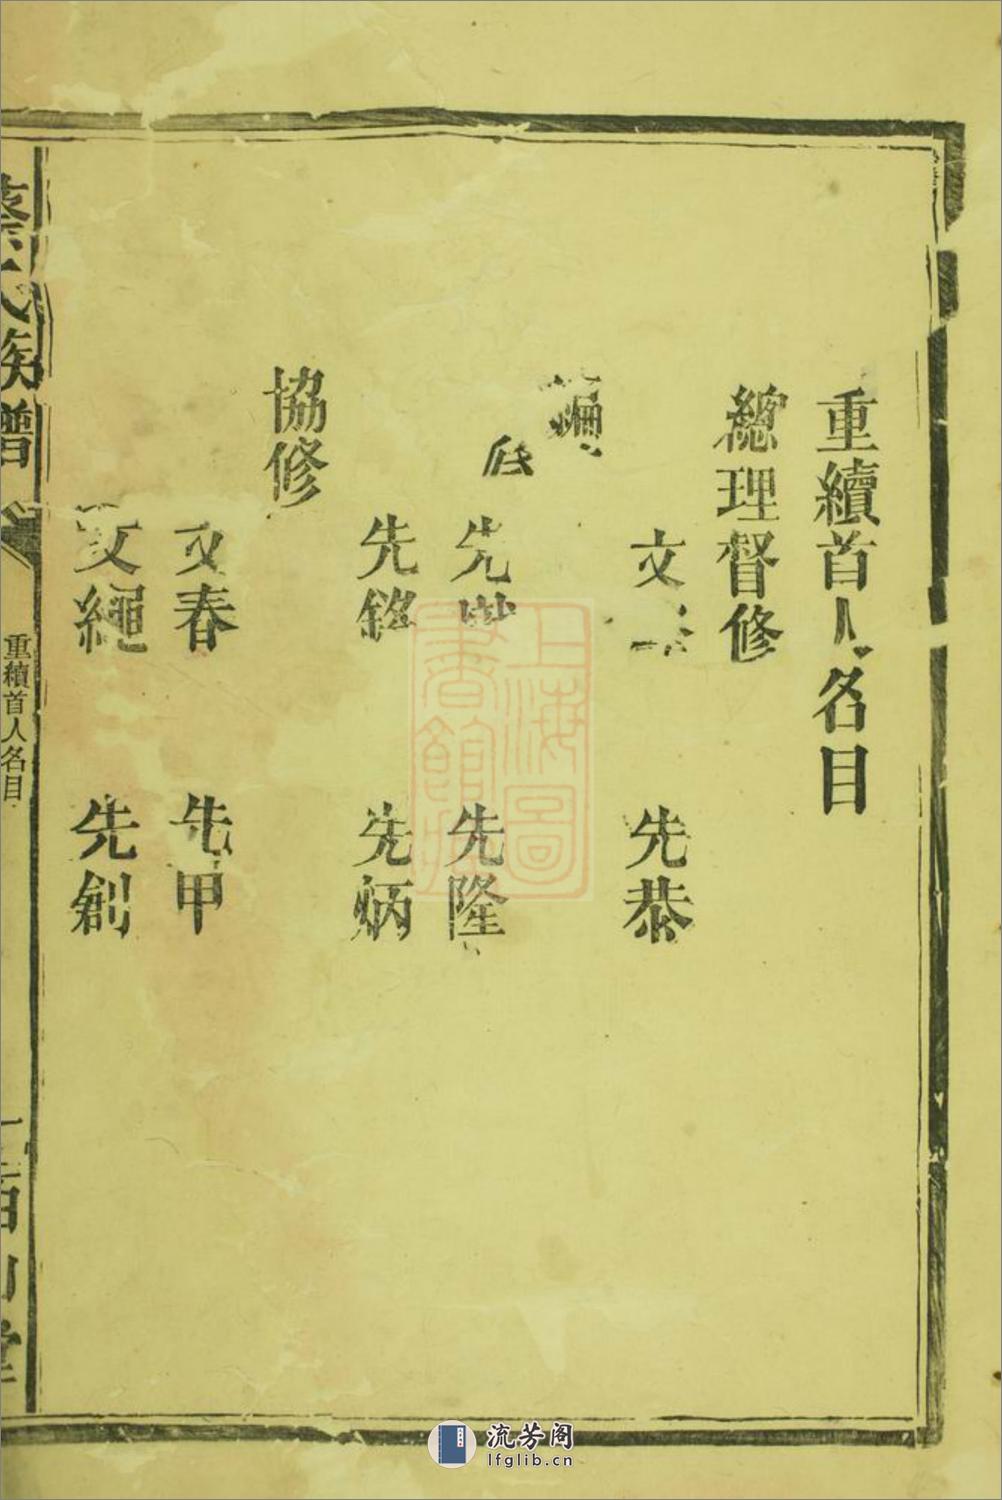 重續首人名目
總理督修
文
先恭
編
先
先隆
先銘
先炳
協修
文春
先甲
文繩
先創
氏族譜
重續首人名目
上海圖書館藏
流芳阁
lfglib.cn